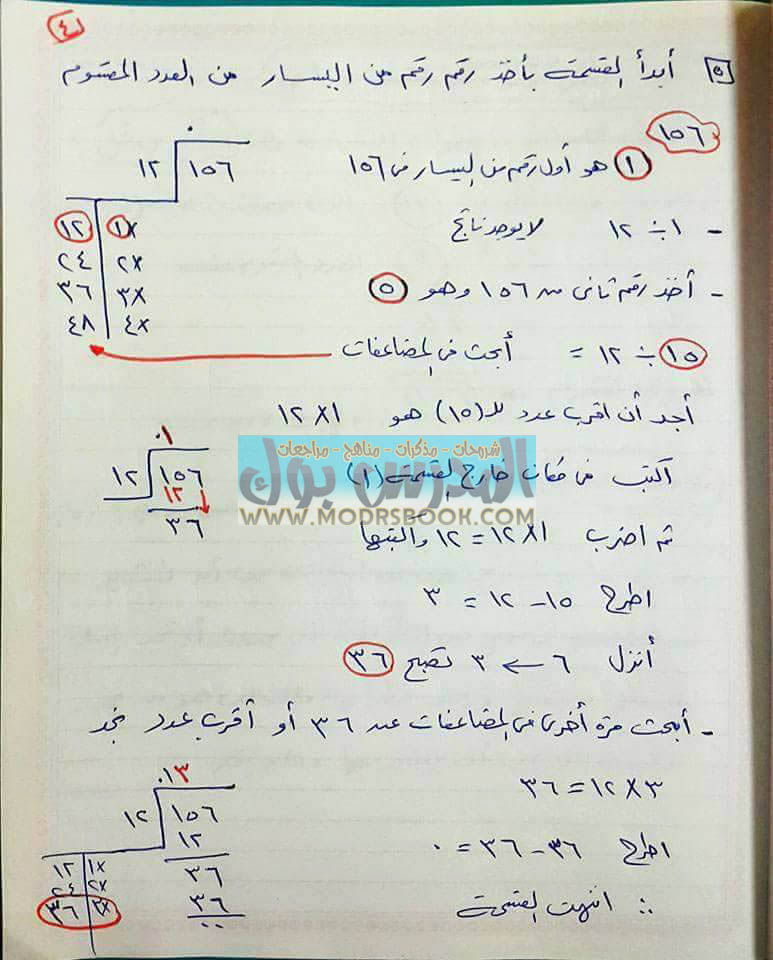 ٤
٥ أبدأ القسمة بأخذ رقم رقم من اليسار من العدد المقسوم
١٥٦
١ هو أول رقم من اليسار في ١٥٦
٠
١٢ ١٥٦
- ١ ÷ ١٢ لا يوجد ناتج
١٢ ١×
٢٤ ٢×
٣٦ ٣×
٤٨ ٤×
- أخذ رقم ثاني من ١٥٦ وهو ٥
١٥ ÷ ١٢ = أبحث في المضاعفات
أجد أن اقرب عدد للـ (١٥) هو ١ × ١٢
شروحات - مذكرات - مناهج - مراجعات
المدرس بوك
WWW.MODRSBOOK.COM
اكتب في مكان خارج القسمة (١)
٠١
١٢ ١٥٦
١٢
٣٦
ثم اضرب ١ × ١٢ = ١٢ واكتبها
اطرح ١٥ - ١٢ = ٣
أنزل ٦ ← ٣ تصبح ٣٦
- أبحث مرة أخرى في المضاعفات عند ٣٦ أو أقرب عدد نجد
٣ × ١٢ = ٣٦
اطرح ٣٦ - ٣٦ = ٠
∴ انتهت القسمة
٠١٣
١٢ ١٥٦
١٢
٣٦
٣٦
٠٠
١٢ ١×
٢٤ ٢×
٣٦ ٣×